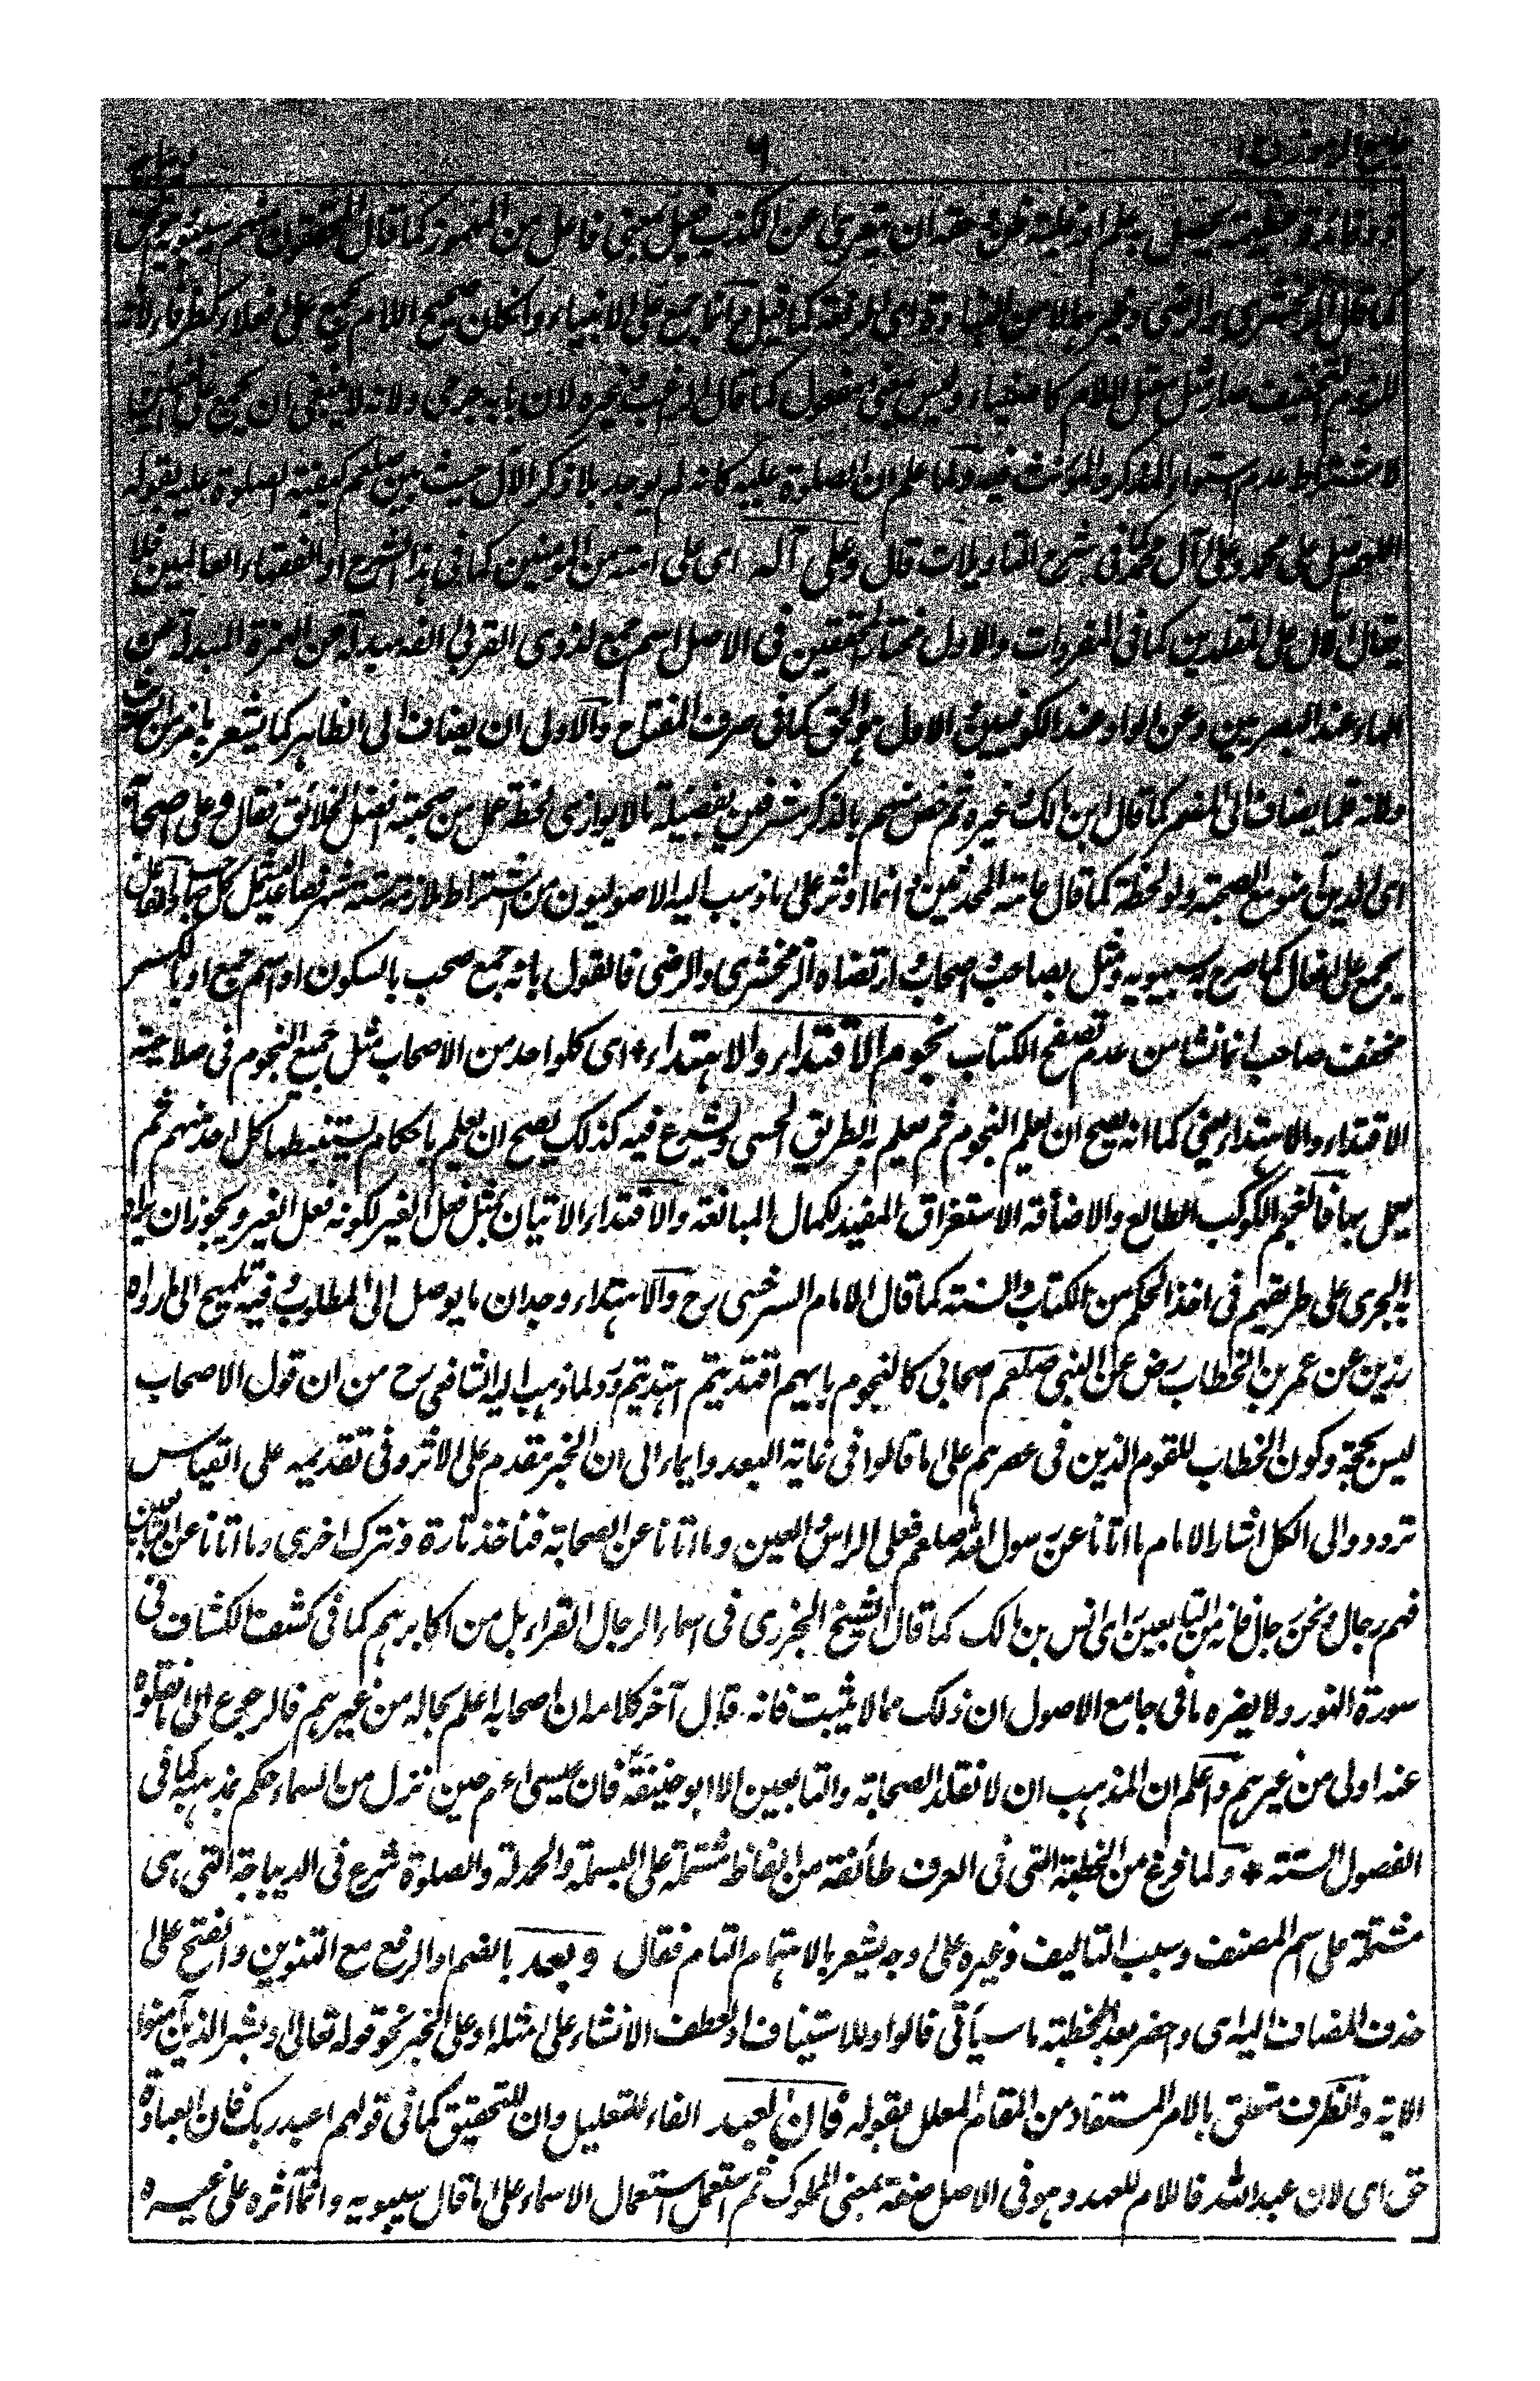 جامع الرموز ج ١
٦
ذو فائدة عظيمة يحصل به علم او غلبة ظن وحقه ان يتعرى عن الكذب فعيل بمعنى فاعل من المهموز كما قال المحققون منهم سيبويه
كما قال الزمخشري والرضي وغيرهما لا من النباوة اي الرفعة كما قيل وانما جمع على الانبياء وان كان صحيح اللام يجمع على فعلاء كظرفاء لانه
للزوم التخفيف صار مثل معتل اللام كاصفياء وليس بمعنى مفعول كما قال الراغب وغيره لان بابه جرحى ولانه لا ينبغي ان يجمع على النبيين
لاشتراط عدم استواء المذكر والمؤنث فيه ولما علم ان الصلوة عليه كانه لم يوجد بلا ذكر الآل حيث بين صلعم كيفية الصلوة عليه بقوله
اللهم صل على محمد وعلى آل محمد كما في شرح التاويلات قال وعلى آله اى على امته من المؤمنين كما في هذا الشرح او الفقهاء العالمين فلا
يقال الآل على المقلدين كما في المفردات والاول مختار المحققين في الاصل اسم جمع لذوى القربى الفه مبدلة من الهمزة المبدلة من
الهاء عند البصريين وعن الواو عند الكوفيين والاول هو الحق كما في صرف المفتاح والاول ان يضاف الى الظاهر كما يشعر به
ولانه قلما يضاف الى المضمر كما قال ابن مالك وغيره ثم خص منهم بالذكر مشرفين بفضيلة ما لا يوازى لحظة عمل من صحبته افضل الخلائق فقال وعلى اصحابه
اى الذين آمنوا مع الصحبة ولو لحظة كما قال عامة المحدثين وانما اوثر على ما ذهب اليه الاصوليون من اشتراط ملازمة ستة اشهر فصاعدا
يجمع على افعال كما صرح به سيبويه ومثل بصاحب واصحاب وارتضاه الزمخشري والرضي فالقول بانه جمع صحب بالسكون او اسم جمع او بالكسر
مخفف صاحب انما نشا من عدم تصفح الكتاب نجوم الاقتداء والاهتداء ٭ اى كلواحد من الاصحاب مثل جميع النجوم في صلاحية
الاقتداء والاهتداء يعنى كما انه يصح ان يعلم النجوم ثم يعلم به الطريق الحسى ويشرع فيه كذلك يصح ان يعلم باحكام يستنبطها كل احد منهم ثم
يعمل بها فالنجم الكوكب الطالع والاضافة الاستغراق المفيد لكمال المبالغة والاقتداء الاتيان بمثل فعل الغير لكونه فعل الغير ويجوز ان يراد
به الجرى على طريقهم في اخذ الحكم من الكتاب والسنة كما قال الامام السرخسى رح والاهتداء وجدان ما يوصل الى المطلوب وفيه تلميح الى ما رواه
رزين عن عمر بن الخطاب رض عن النبى صلعم اصحابى كالنجوم بايهم اقتديتم اهتديتم ورد لما ذهب اليه الشافعى رح من ان قول الاصحاب
ليس بحجة وكون الخطاب للقوم الذين في عصرهم على ما قالوا في غاية البعد وايماء الى ان الخبر مقدم على الاثر وفي تقديمه على القياس
تردد والى الكل اشار الامام ما اتانا عن رسول الله صلعم فعلى الراس والعين وما اتانا عن الصحابة فناخذ تارة ونترك اخرى وما اتانا عن التابعين
فهم رجال ونحن رجال فانه من التابعين راى انس بن مالك كما قال الشيخ الجزرى في اسماء الرجال القراء بل من اكابرهم كما في كشف الكشاف في
سورة النور ولا يضره ما في جامع الاصول ان ذلك مما لا يثبت فانه قال آخر كلامه ان اصحابه اعلم بحاله من غيرهم فالرجوع الى ما نقلوه
عنه اولى من غيرهم واعلم ان المذهب ان لا نقلد الصحابة والتابعين الا ابو حنيفة فان عيسى ءم حين نزل من السماء حكم بمذهبه كما في
الفصول الستة ٭ ولما فرغ من الخطبة التى في العرف طائفة من الفاظ مشتملة على البسملة والحمدلة والصلوة شرع في الديباجة التى هى
مشتملة على اسم المصنف وسبب التاليف وغيره على وجه يشعر بالاهتمام التام فقال وبعد بالضم او الرفع مع التنوين والفتح على
حذف المضاف اليه اى واحضر بعد الخطبة ما سيأتى قالوا وللاستيناف او لعطف الانشاء على مثله او على الخبر نحو قوله تعالى وبشر الذين آمنوا
الاية والظرف متعلق بالامر المستفاد من المقام المعلل بقوله فان العبد الفاء للتعليل وان للتحقيق كما في قولهم اعبد ربك فان العبادة
حق اى لان عبد الله فاللام للعهد وهو في الاصل صفة بمعنى المملوك ثم استعمل استعمال الاسماء على ما قال سيبويه وانما آثره على غيره